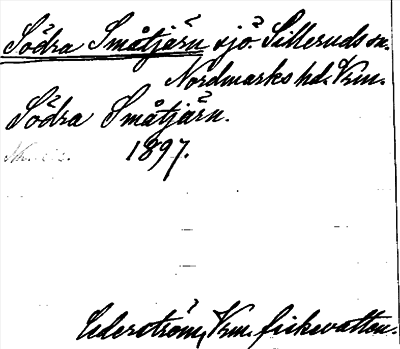 Södra Småtjärn sjö. Silleruds sn.
Nordmarks hd. Vrm.
Södra Småtjärn.
1897.
Cederström, Vrm. fiskevatten.